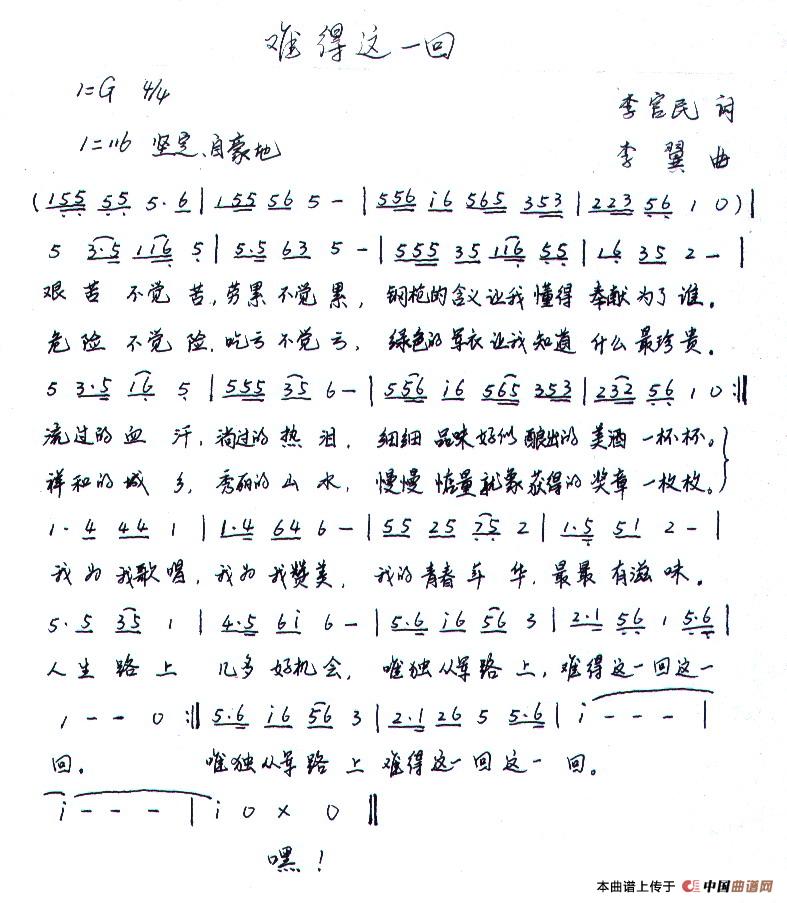 难得这一回
1=G 4/4
李官民 词
1=116 坚定、自豪地
李翼 曲
(155 55 5·6 | 155 56 5 - | 556 i6 565 353 | 223 56 1 0) |
5 3·5 1i6 5 | 5·5 63 5 - | 555 35 1i6 55 | 16 35 2 - |
艰苦不觉苦,劳累不觉累,钢枪的含义让我懂得奉献为了谁。
危险不觉险,吃亏不觉亏,绿色的军衣让我知道什么最珍贵。
5 3·5 i6 5 | 555 35 6 - | 556 i6 565 353 | 232 56 1 0 :||
流过的血汗,淌过的热泪,细细品味好似酿出的美酒一杯杯。
祥和的城乡,秀丽的山水,慢慢掂量就象获得的奖章一枚枚。
1·4 44 1 | 1·4 64 6 - | 55 25 75 2 | 1·5 51 2 - |
我为我歌唱,我为我赞美,我的青春年华,最最有滋味。
5·5 35 1 | 4·5 6i 6 - | 5·6 i6 56 3 | 2·1 56 1 5·6 |
人生路上几多好机会,唯独从军路上,难得这一回这一
1 - - 0 :|| 5·6 i6 56 3 | 2·1 26 5 5·6 | i - - - |
回。唯独从军路上难得这一回这一回。
i - - - | i 0 × 0 ||
嘿!
本曲谱上传于 中国曲谱网